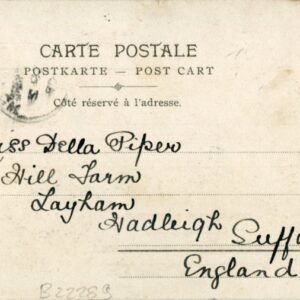 CARTE POSTALE
POSTKARTE — POST CART
Côté réservé à l'adresse.
iss Della Piper
Hill Farm
Layham
Hadleigh
Suffo
England
B22289